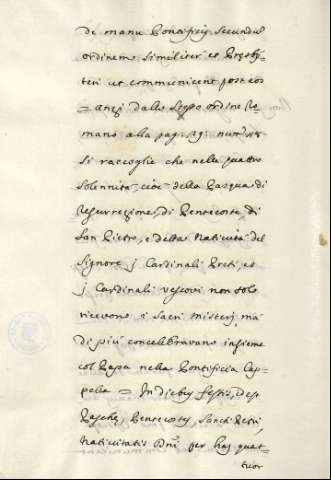 de manu Pontificis secundus
ordinem similiter et Presby-
teri ut communicent post eos
= anzi dallo stesso ordine Ro-
mano alla pag.
si raccoglie che nelle quattro
solennità, cioè della Pasqua di
Resurrezione, di Pentecoste, di
San Pietro, e della Natività del
Signore j Cardinali Preti, ed
j Cardinali vescovi non solo
ricevono i sacri misterj, ma
di più concelebravano insieme
col Papa nella Pontificia Cap-
pella = In diebus festis, id est
Paschæ, Pentecostes, Sancti Petri,
Nativitatis Dñi per has quat-
tuor